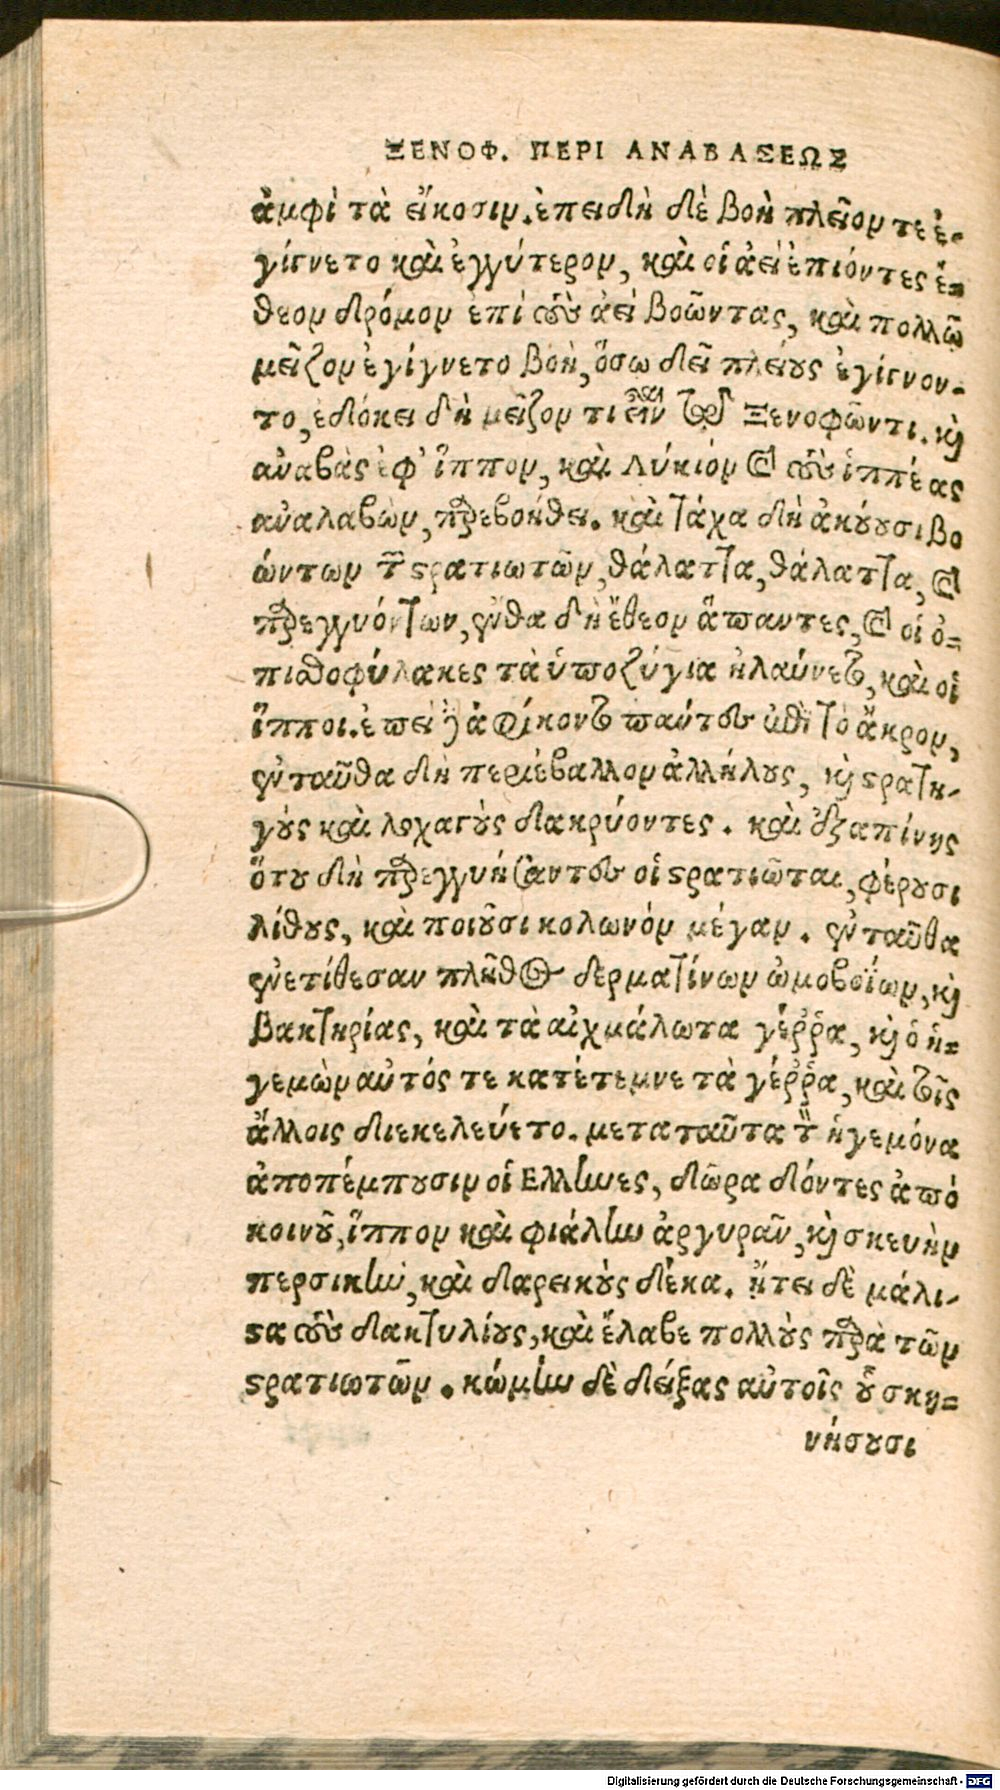 ΞΕΝΟΦ. ΠΕΡΙ ΑΝΑΒΑΣΕΩΣ
ἀμφὶ τὰ εἴκοσιν. ἐπειδὴ δὲ βοὴ πλεῖον τε ἐ-
γίγνετο καὶ ἐγγύτερον, καὶ οἱ ἀεὶ ἐπιόντες ἔ-
θεον δρόμον ἐπὶ τοὺς ἀεὶ βοῶντας, καὶ πολλῷ
μεῖζον ἐγίγνετο βοὴ, ὅσω δεῖ πλείους ἐγίγνον-
το, ἐδόκει δὴ μεῖζον τι εἶναι τῷ Ξενοφῶντι. καὶ
ἀναβὰς ἐφ' ἵππον, καὶ Λύκιον καὶ τοὺς ἱππέας
ἀναλαβὼν, παρεβοήθει. καὶ τάχα δὴ ἀκούουσι βο
ώντων τῶν στρατιωτῶν, θάλαττα, θάλαττα, καὶ
παρεγγυόντων, ἔνθα δὴ ἔθεον ἅπαντες, καὶ οἱ ὀ-
πισθοφύλακες τὰ ὑποζύγια ἠλαύνετο, καὶ οἱ
ἵπποι. ἐπεὶ δὲ ἀφίκοντο πάντες ἐπὶ τὸ ἄκρον,
ἐνταῦθα δὴ περιέβαλλον ἀλλήλους, καὶ στρατη-
γοὺς καὶ λοχαγοὺς δακρύοντες. καὶ ἐξαπίνης
ὅτου δὴ παρεγγυήσαντος οἱ στρατιῶται, φέρουσι
λίθους, καὶ ποιοῦσι κολωνὸν μέγαν. ἐνταῦθα
ἐνετίθεσαν πλῆθος δερματίνων ὠμοβοΐων, καὶ
βακτηρίας, καὶ τὰ αἰχμάλωτα γέῤῥα, καὶ ὁ ἡ-
γεμὼν αὐτός τε κατέτεμνε τὰ γέῤῥα, καὶ τοῖς
ἄλλοις διεκελεύετο. μετα ταῦτα τὸν ἡγεμόνα
ἀποπέμπουσιν οἱ Ελληνες, δῶρα δόντες ἀπὸ
κοινοῦ, ἵππον καὶ φιάλην ἀργυρᾶν, καὶ σκευὴν
περσικὴν, καὶ δαρεικοὺς δέκα. ᾔτει δὲ μάλι-
στα τοὺς δακτυλίους, καὶ ἔλαβε πολλοὺς παρὰ τῶν
στρατιωτῶν. κώμην δὲ δείξας αὐτοῖς οὗ σκη-
νήσουσι
Digitalisierung gefördert durch die Deutsche Forschungsgemeinschaft - DFG